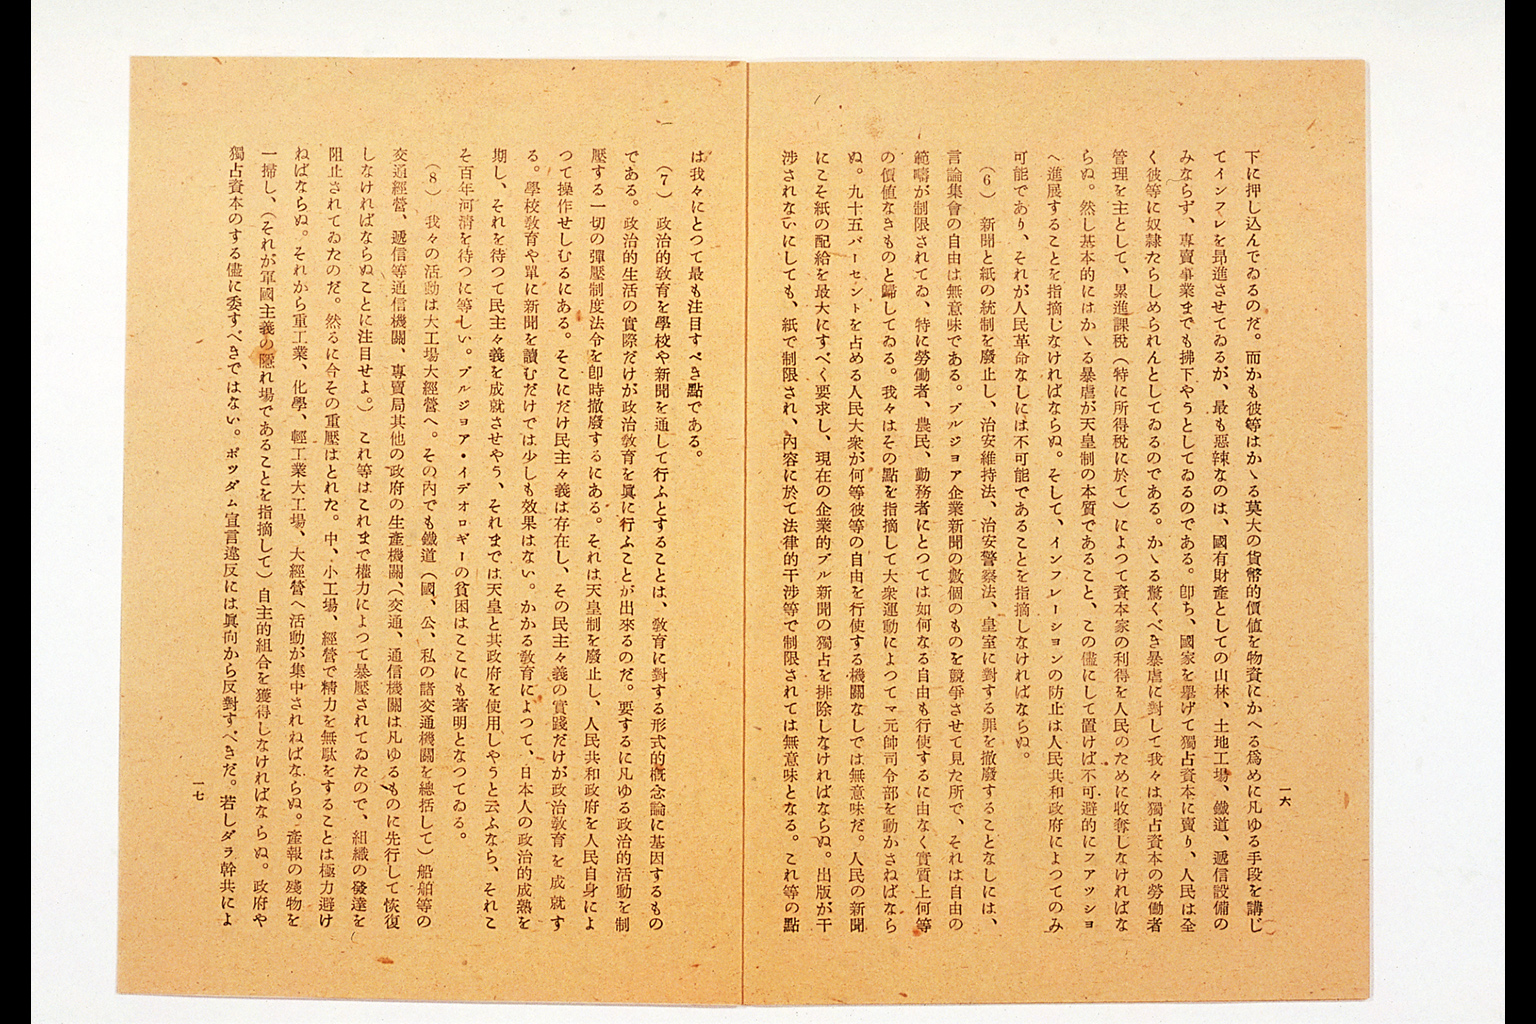 下に押し込んでゐるのだ。而かも彼等はかゝる莫大の貨幣的價値を物資にかへる爲めに凡ゆる手段を講じ
てインフレを昻進させてゐるが、最も惡辣なのは、國有財產としての山林、土地工場、鐵道、遞信設備の
みならず、專賣事業までも拂下やうとしてゐるのである。卽ち、國家を擧げて獨占資本に賣り、人民は全
く彼等に奴隸たらしめられんとしてゐるのである。かゝる驚くべき暴虐に對して我々は獨占資本の勞働者
管理を主として、累進課稅(特に所得稅に於て)によつて資本家の利得を人民のために收奪しなければな
らぬ。然し基本的にはかゝる暴虐が天皇制の本質であること、この儘にして置けば不可避的にフアツシヨ
へ進展することを指摘しなければならぬ。そして、インフレーションの防止は人民共和政府によつてのみ
可能であり、それが人民革命なしには不可能であることを指摘しなければならぬ。
(6) 新聞と紙の統制を廢止し、治安維持法、治安警察法、皇室に對する罪を撤廢することなしには、
言論集會の自由は無意味である。ブルジョア企業新聞の數個のものを競爭させて見た所で、それは自由の
範疇が制限されてゐ、特に勞働者、農民、勤務者にとつては如何なる自由も行使するに由なく實質上何等
の價値なきものと歸してゐる。我々はその點を指摘して大衆運動によつてマ元帥司令部を動かさねばなら
ぬ。九十五パーセントを占める人民大衆が何等彼等の自由を行使する機關なしでは無意味だ。人民の新聞
にこそ紙の配給を最大にすべく要求し、現在の企業的ブル新聞の獨占を排除しなければならぬ。出版が干
涉されないにしても、紙で制限され、內容に於て法律的干涉等で制限されては無意味となる。これ等の點
一六
は我々にとつて最も注目すべき點である。
(7) 政治的敎育を學校や新聞を通して行ふとすることは、敎育に對する形式的槪念論に基因するもの
である。政治的生活の實際だけが政治敎育を眞に行ふことが出來るのだ。要するに凡ゆる政治的活動を制
壓する一切の彈壓制度法令を卽時撤廢するにある。それは天皇制を廢止し、人民共和政府を人民自身によ
つて操作せしむるにある。そこにだけ民主々義は存在し、その民主々義の實踐だけが政治敎育を成就す
る。學校敎育や單に新聞を讀むだけでは少しも效果はない。かかる敎育によつて、日本人の政治的成熟を
期し、それを待つて民主々義を成就させやう、それまでは天皇と其政府を使用しやうと云ふなら、それこ
そ百年河淸を待つに等しい。ブルジョア・イデオロギーの貧困はここにも著明となつてゐる。
(8) 我々の活動は大工場大經營へ。その內でも鐵道(國、公、私の諸交通機關を總括して)船舶等の
交通經營、遞信等通信機關、專賣局其他の政府の生產機關、(交通、通信機關は凡ゆるものに先行して恢復
しなければならぬことに注目せよ。)これ等はこれまで權力によつて暴壓されてゐたので、組織の發達を
阻止されてゐたのだ。然るに今その重壓はとれた。中、小工場、經營で精力を無駄をすることは極力避け
ねばならぬ。それから重工業、化學、輕工業大工場、大經營へ活動が集中されねばならぬ。產報の殘物を
一掃し、(それが軍國主義の隱れ場であることを指摘して)自主的組合を獲得しなければならぬ。政府や
獨占資本のする儘に委すべきではない。ポツダム宣言違反には眞向から反對すべきだ。若しダラ幹共によ
一七